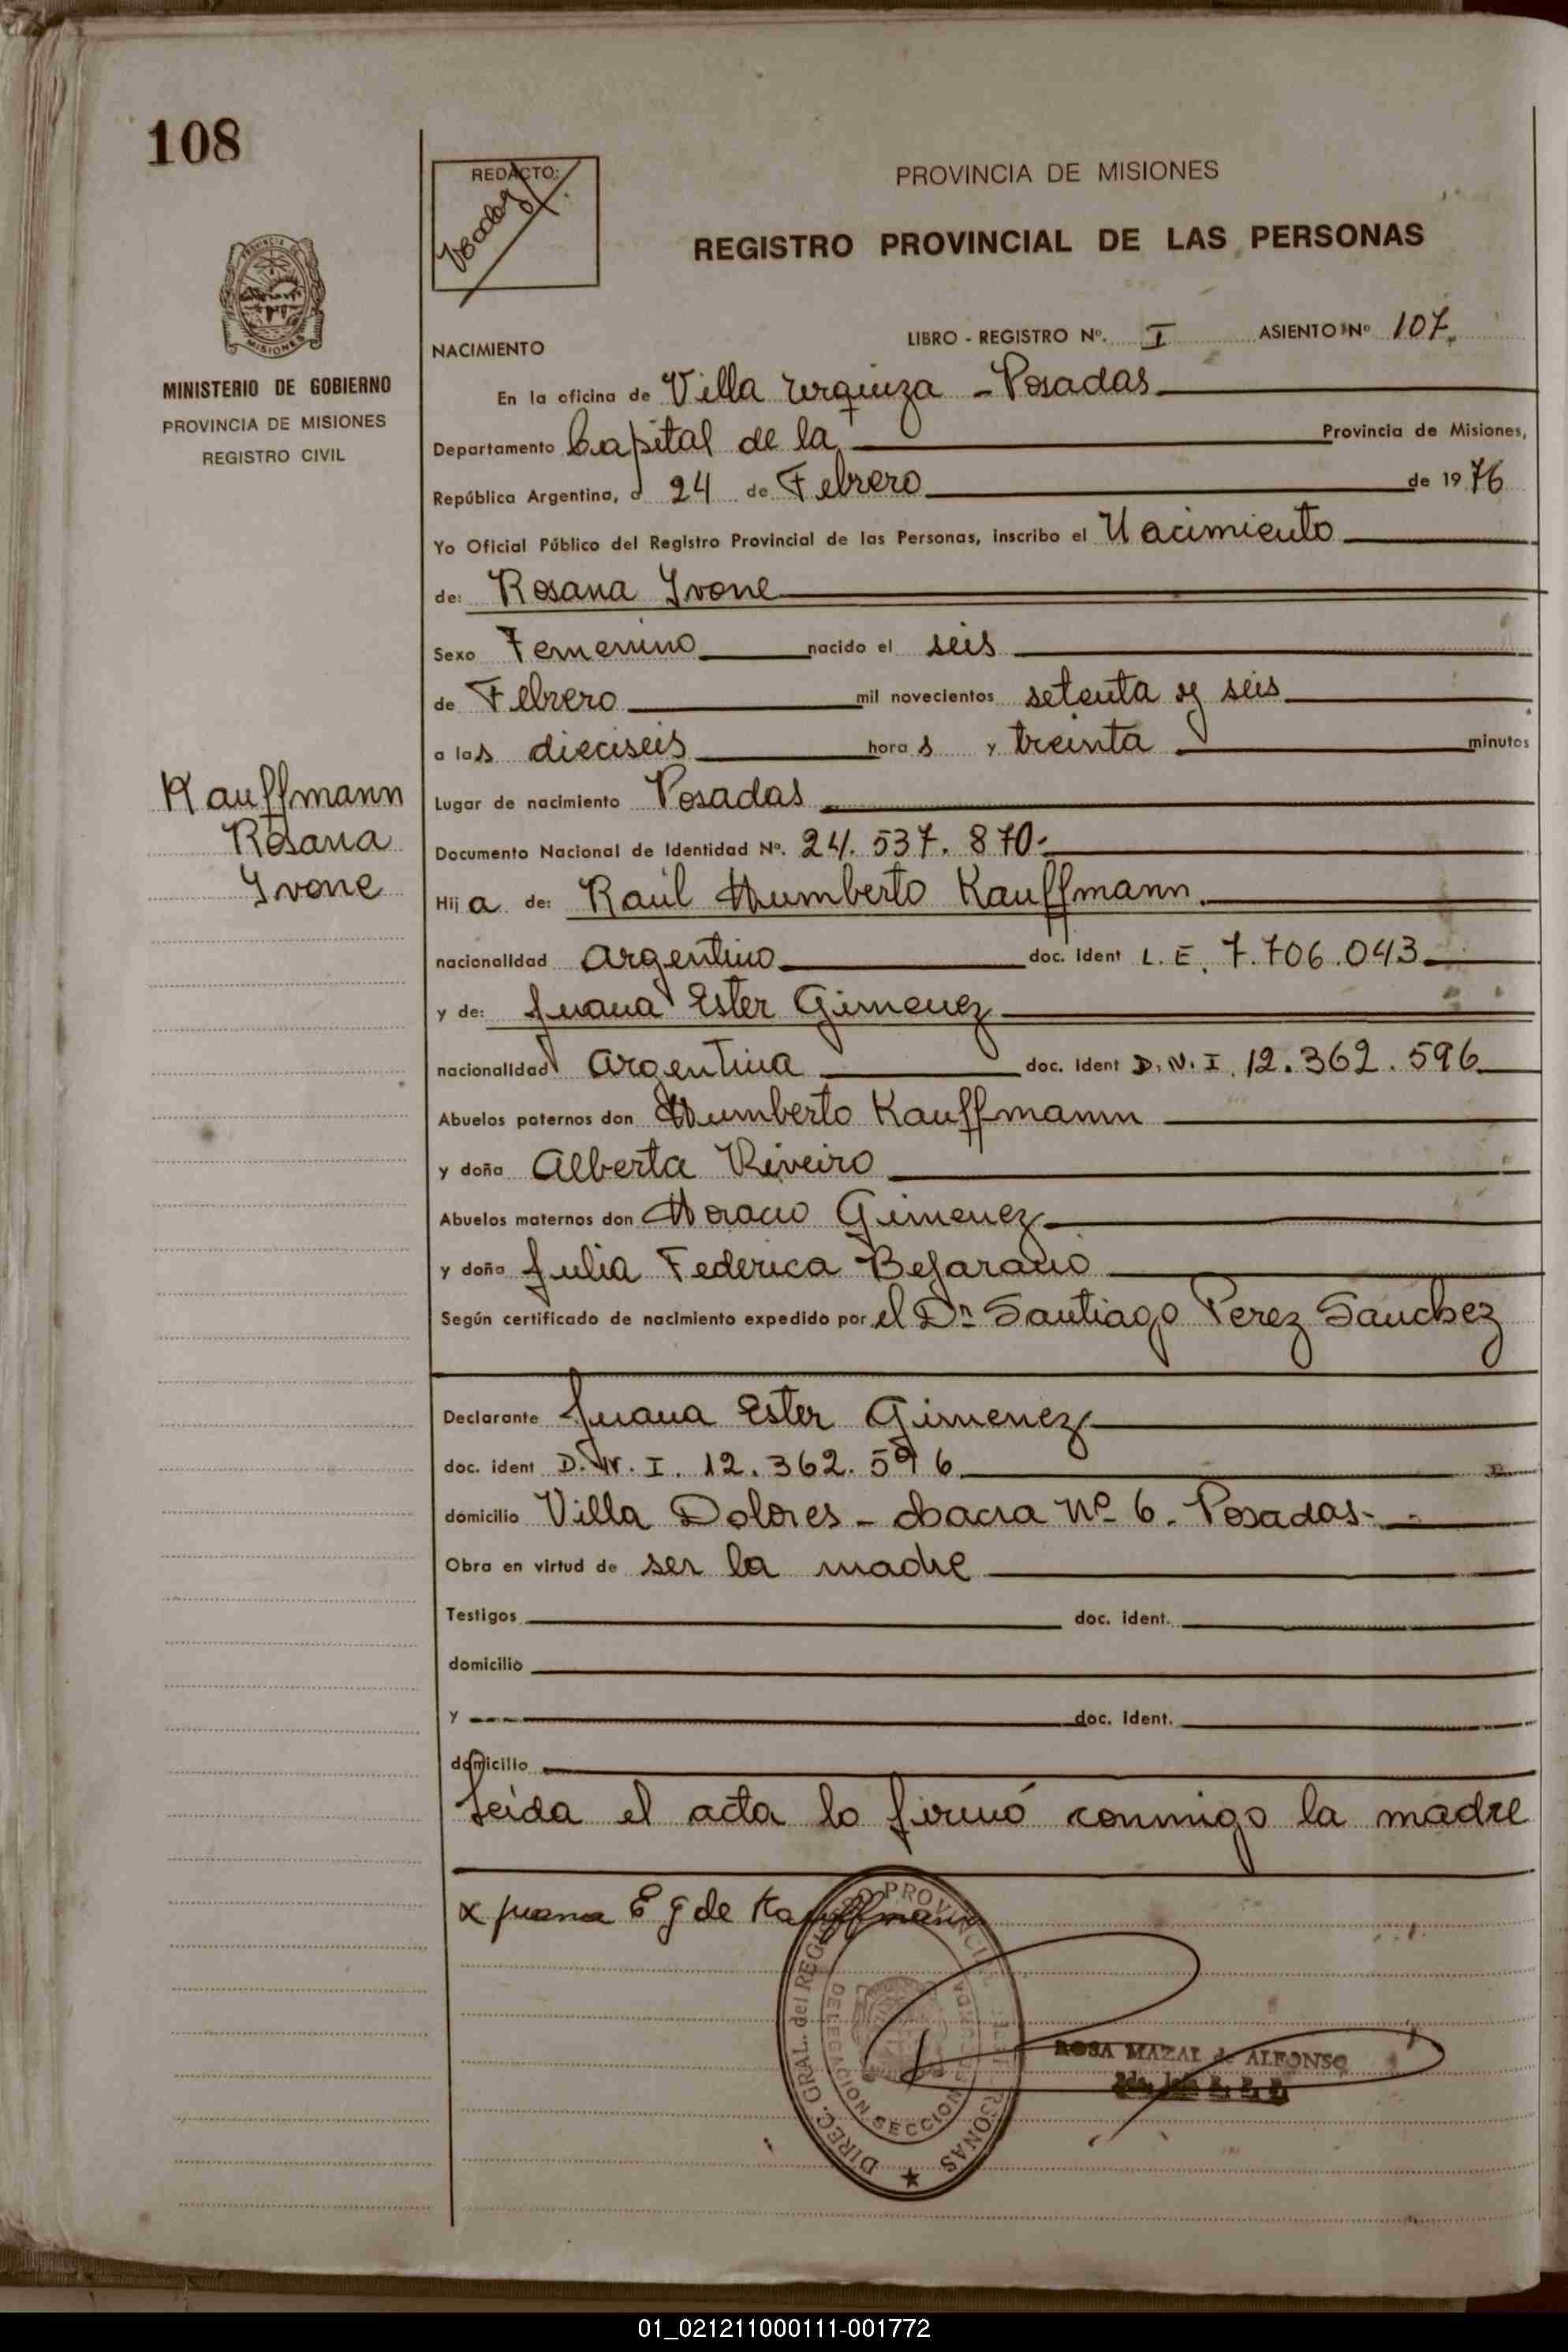 108
REDACTO:
PROVINCIA DE MISIONES
REGISTRO PROVINCIAL DE LAS PERSONAS
MISIONES
MINISTERIO DE GOBIERNO
PROVINCIA DE MISIONES
REGISTRO CIVIL
NACIMIENTO
LIBRO - REGISTRO Nº. I ASIENTO Nº 107.
En la oficina de Villa Urquiza - Posadas
Departamento Capital de la Provincia de Misiones,
República Argentina, a 24 de Febrero de 1976
Yo Oficial Público del Registro Provincial de las Personas, inscribo el Nacimiento
de: Rosana Ivone
Sexo Femenino nacido el seis
de Febrero mil novecientos setenta y seis
a las dieciseis horas y treinta minutos
Kauffmann
Rosana
Ivone
Lugar de nacimiento Posadas
Documento Nacional de Identidad Nº. 24.537.870-
Hija de: Raúl Humberto Kauffmann.
nacionalidad argentino doc. ident L.E. 7.706.043
y de: Juana Ester Gimenez
nacionalidad argentina doc. ident D.N.I. 12.362.596
Abuelos paternos don Humberto Kauffmann
y doña Alberta Riveiro
Abuelos maternos don Horacio Gimenez
y doña Julia Federica Bejarano
Según certificado de nacimiento expedido por el Dr Santiago Perez Sanchez
Declarante Juana Ester Gimenez
doc. ident D.N.I. 12.362.596
domicilio Villa Dolores - chacra Nº 6. Posadas-
Obra en virtud de ser la madre
Testigos doc. ident.
domicilio
y doc. ident.
domicilio
Leída el acta lo firmó conmigo la madre
x Juana E G de Kauffmann
DIREC. GRAL. del REGISTRO PROVINCIAL DE LAS PERSONAS
SECCION
ROSA MAZAL de ALFONSO
01_021211000111-001772